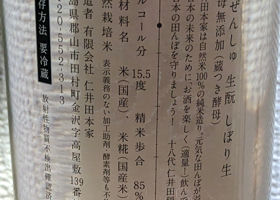 ぜんしゅ 生酛 しぼり生
母無添加(蔵つき酵母)
田本家は自然米100%の純米造り。元気な田んぼが
本の未来のために、お酒を楽しく(適量!)飲んで
本の田んぼを守りましょう! 十八代 仁井田
ルコール分 15.5度 精米歩合 85%
材料名 米(国産)、米糀(国産米)
然栽培米 表示義務のない加工助剤、酵素剤等も不
造者 有限会社 仁井田本家
島県郡山市田村町金沢字高屋敷139番
20-552-313
存方法 要冷蔵
放射性物質不検出確認済